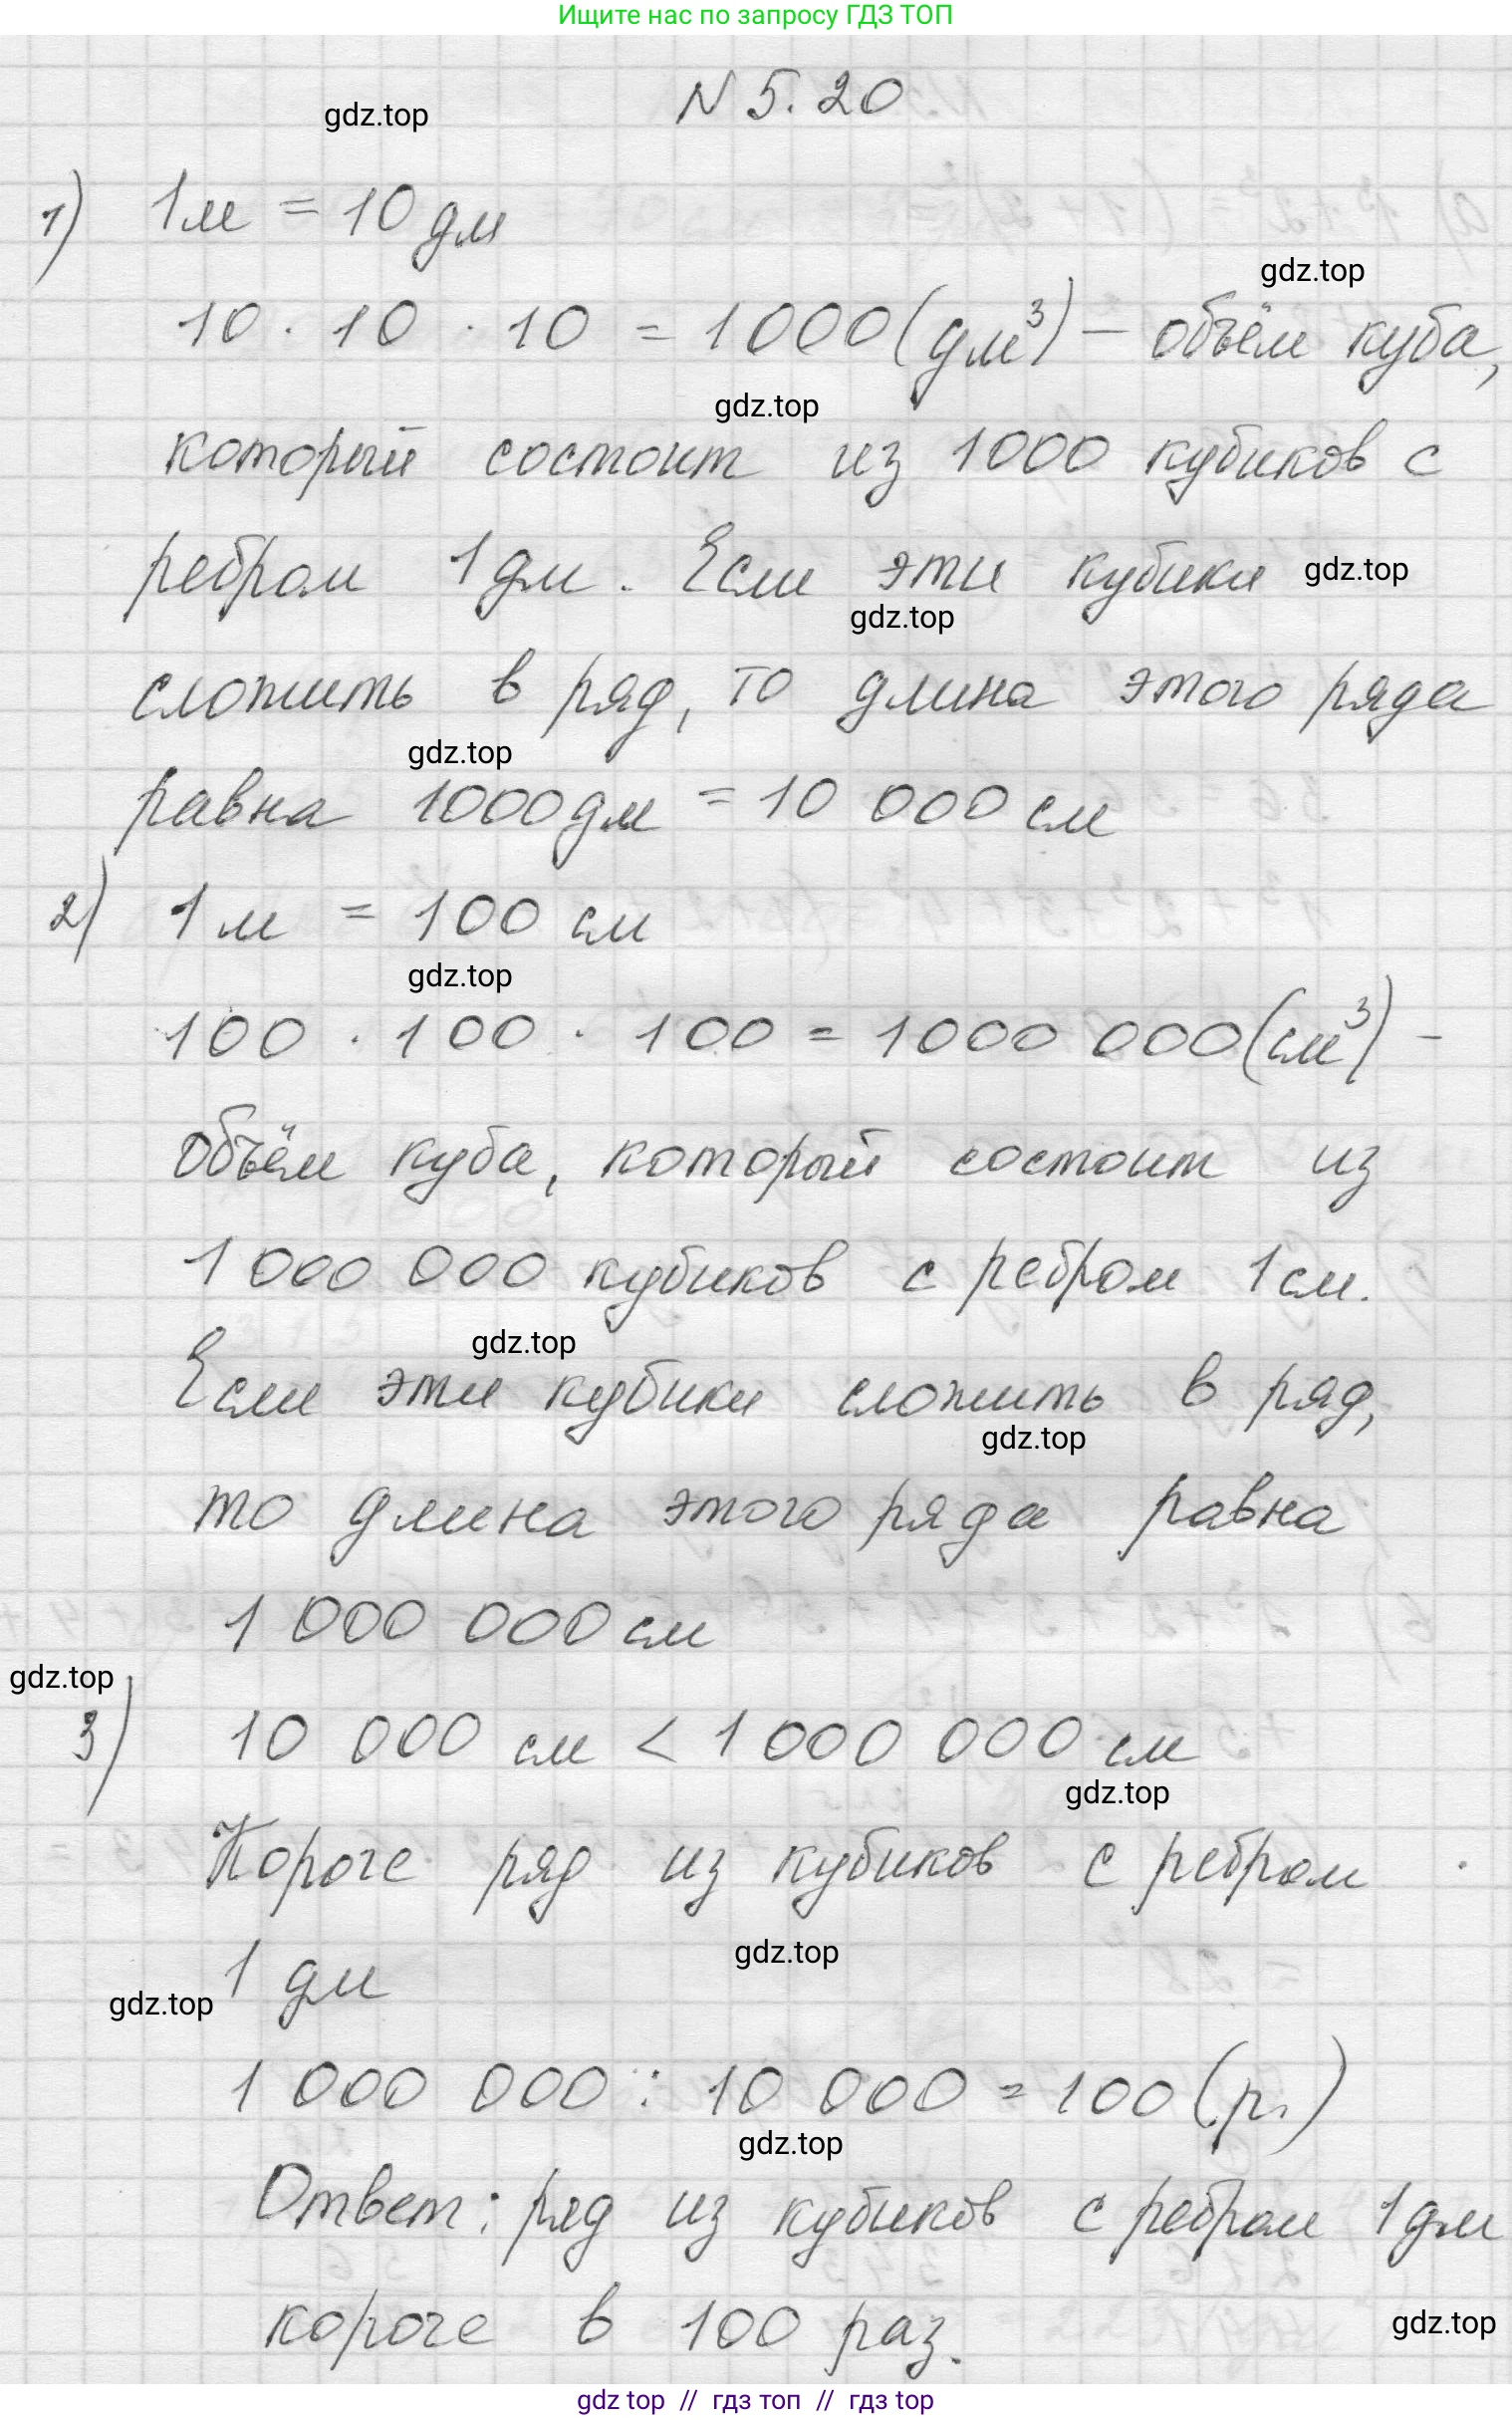 Ищите нас по запросу ГДЗ ТОП
N 5. 20
gdz.top
1) 1м = 10 дм
gdz.top
10 · 10 · 10 = 1000(дм³) - объём куба,
gdz.top
который состоит из 1000 кубиков с
ребром 1дм. Если эти кубики
gdz.top
gdz.top
сложить в ряд, то длина этого ряда
gdz.top
равна 1000дм = 10 000 см
2) 1 м = 100 см
gdz.top
100 · 100 · 100 = 1000 000(см³) -
объём куба, который состоит из
1 000 000 кубиков с ребром 1см.
gdz.top
Если эти кубики сложить в ряд,
gdz.top
то длина этого ряда равна
1 000 000 см
gdz.top
3) 10 000 см < 1 000 000 см
gdz.top
Короче ряд из кубиков с ребром
gdz.top
1 дм
gdz.top
1 000 000 : 10 000 = 100 (р.)
gdz.top
Ответ: ряд из кубиков с ребром 1дм
короче в 100 раз.
gdz.top
gdz top // гдз топ // gdz top